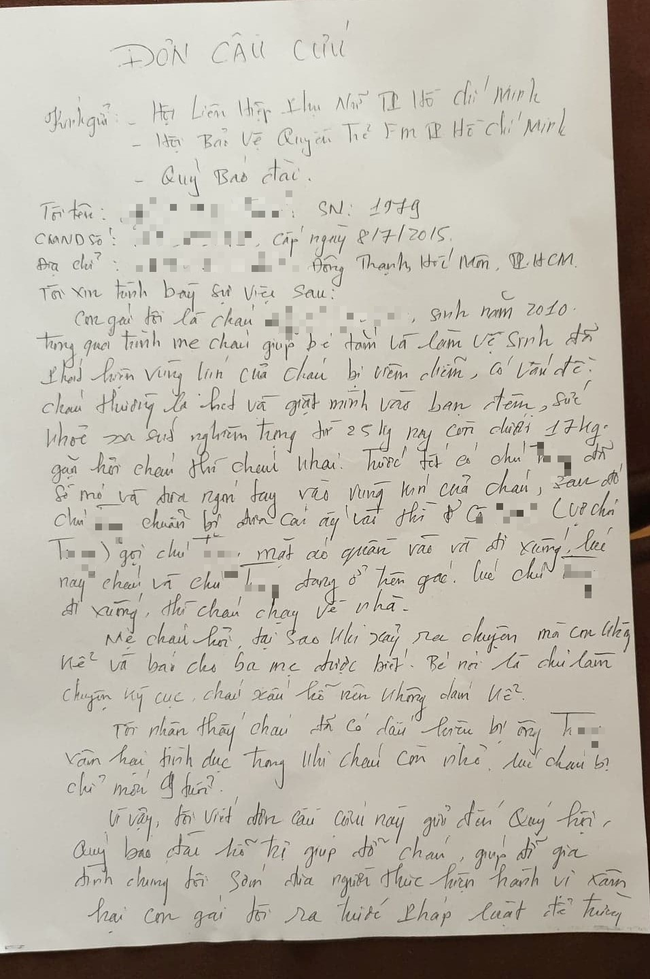 ĐƠN CẦU CỨU
Kính gửi: - Hội Liên Hiệp Phụ Nữ TP Hồ Chí Minh
- Hội Bảo Vệ Quyền Trẻ Em TP Hồ Chí Minh
- Quý Báo đài.
Tôi tên: SN: 1979
CMND số: Cấp ngày 8/7/2015.
Địa chỉ: Đông Thạnh, Hóc Môn, TP.HCM.
Tôi xin trình bày sự việc sau:
Con gái tôi là cháu , sinh năm 2010.
trong quá trình mẹ cháu giúp bé tắm và làm vệ sinh đã
phát hiện vùng kín của cháu bị viêm nhiễm, có vấn đề.
cháu thường la hét và giật mình vào ban đêm, sức
khỏe sa sút nghiêm trọng từ 25kg nay còn dưới 17kg.
gặn hỏi cháu thì cháu khai. Trước tết có chú T đã
sờ mó và đưa ngón tay vào vùng kín của cháu, sau đó
chú chuẩn bị đưa cái ấy vào thì cô (vợ chú
T ) gọi chú T , mặc đồ quần vào và đi xuống, lúc
này cháu và chú T đang ở trên gác. lúc chú
đi xuống, thì cháu chạy về nhà.
Mẹ cháu hỏi, tại sao khi xảy ra chuyện mà con không
kể và báo cho ba mẹ được biết. Bé nói là chú làm
chuyện kỳ cục, cháu xấu hổ nên không dám kể.
Tôi nhận thấy cháu đã có dấu hiệu bị ông T
xâm hại tình dục trong khi cháu còn nhỏ, lúc cháu bị
chỉ mới 9 tuổi.
Vì vậy, tôi viết đơn cầu cứu này gửi đến Quý hội,
Quý báo đài hỗ trợ giúp đỡ cháu, giúp đỡ gia
đình chúng tôi sớm đưa người thực hiện hành vi xâm
hại con gái tôi ra trước pháp luật để